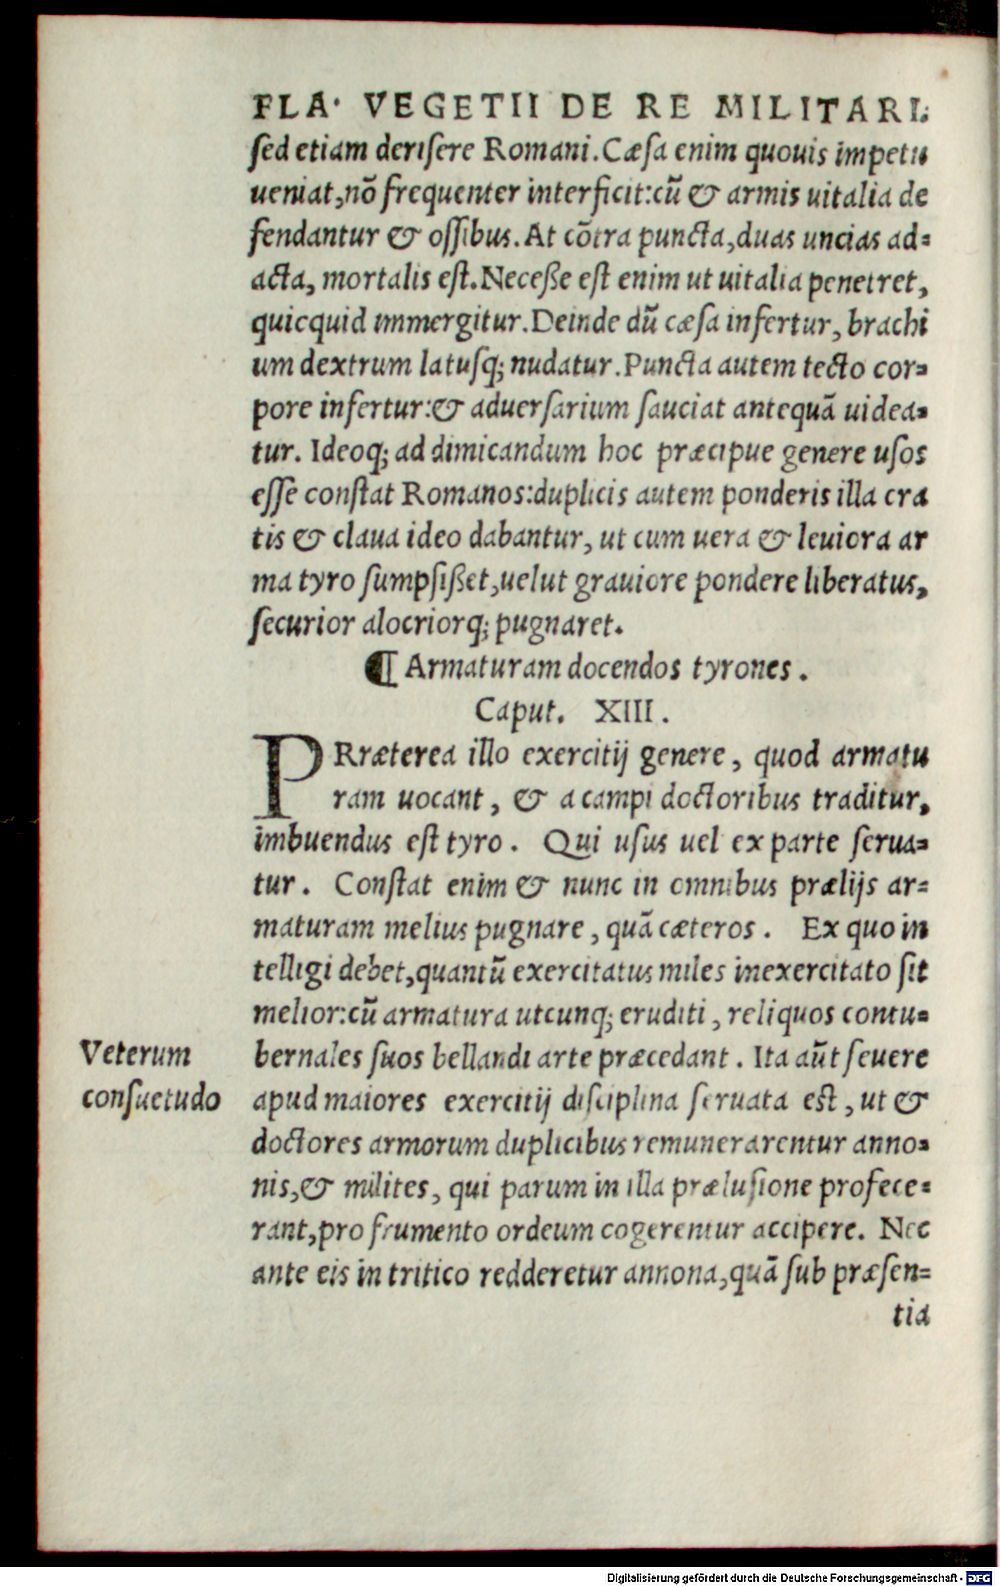 FLA· VEGETII DE RE MILITARI.
sed etiam derisere Romani. Cæsa enim quouis impetu
ueniat, nõ frequenter interficit: cũ & armis uitalia de
fendantur & ossibus. At cõtra puncta, duas uncias ad=
acta, mortalis est. Necesse est enim ut uitalia penetret,
quicquid immergitur. Deinde dũ cæsa infertur, brachi
um dextrum latusq; nudatur. Puncta autem tecto cor=
pore infertur: & aduersarium sauciat antequã uidea=
tur. Ideoq; ad dimicandum hoc præcipue genere usos
esse constat Romanos: duplicis autem ponderis illa cra
tis & claua ideo dabantur, ut cum uera & leuiora ar
ma tyro sumpsisset, uelut grauiore pondere liberatus,
securior alocriorq; pugnaret.
¶ Armaturam docendos tyrones.
Caput. XIII.
PRræterea illo exercitij genere, quod armatu
ram uocant, & a campi doctoribus traditur,
imbuendus est tyro. Qui usus uel ex parte serua=
tur. Constat enim & nunc in omnibus prælijs ar=
maturam melius pugnare, quã cæteros. Ex quo in
telligi debet, quantũ exercitatus miles inexercitato sit
melior: cũ armatura utcunq; eruditi, reliquos contu=
Veterum
consuetudo
bernales suos bellandi arte præcedant. Ita aũt seuere
apud maiores exercitij disciplina seruata est, ut &
doctores armorum duplicibus remunerarentur anno=
nis, & milites, qui parum in illa prælusione profece=
rant, pro frumento ordeum cogerentur accipere. Nec
ante eis in tritico redderetur annona, quã sub præsen=
tia
Digitalisierung gefördert durch die Deutsche Forschungsgemeinschaft - DFG